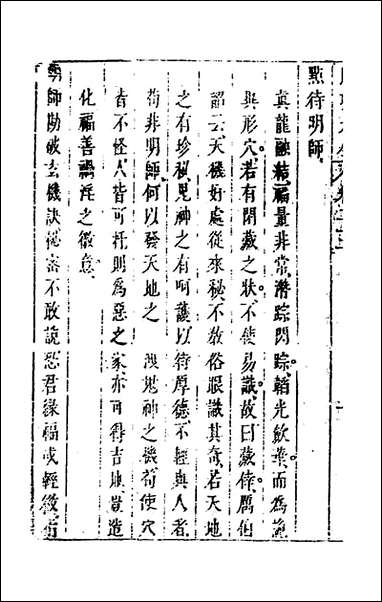 點待明師
真龍融結福量非常潛踪閃踪韜光斂華而為
與形穴若有閉藏之狀不使易識故曰藏倖厲伯
韶云天機好處從來秘不教俗眼識其奇若天地
之有珍秘鬼神之有呵護以待厚德不輕與人者
苟非明師何以發天地之 洩鬼神之機苟使穴
皆不怪人皆可扦則為惡之家亦可得吉地豈造
化福善禍淫之微意
師勘破玄機訣秘審不敢說恐君緣福或輕微